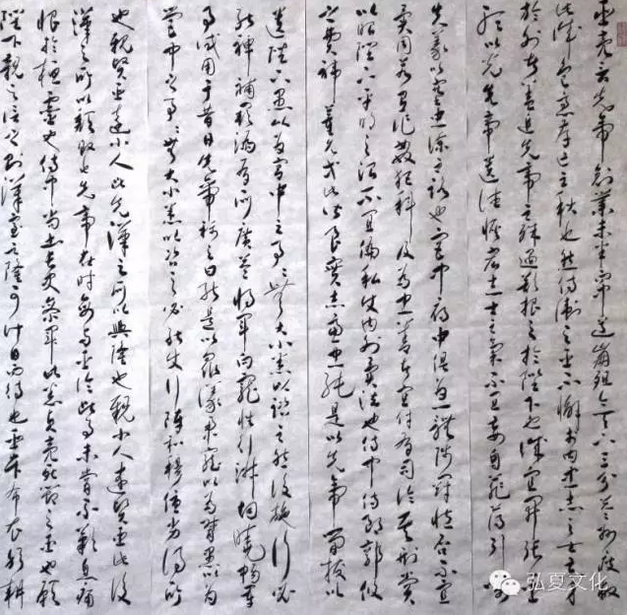 臣亮言先帝創業未半而中道崩殂今天下三分益州疲敝
此誠危急存亡之秋也然侍衛之臣不懈於內忠志之士忘身
於外者蓋追先帝之殊遇欲報之於陛下也誠宜開張聖
聽以光先帝遺德恢宏志士之氣不宜妄自菲薄引喻
失義以塞忠諫之路也宮中府中俱為一體陟罰臧否不宜
異同若有作姦犯科及為忠善者宜付有司論其刑賞
以昭陛下平明之治不宜偏私使內外異法也侍中侍郎郭攸
之費禕董允等此皆良實志慮忠純是以先帝簡拔以
遺陛下愚以為宮中之事事無大小悉以諮之然後施行必
能裨補闕漏有所廣益將軍向寵性行淑均曉暢軍
事試用於昔日先帝稱之曰能是以眾議舉寵以為督愚以為
營中之事事無大小悉以諮之必能使行陣和穆優劣得所
也親賢臣遠小人此先漢之所以興隆也親小人遠賢臣此後
漢之所以傾頹也先帝在時每與臣論此事未嘗不歎息痛
恨於桓靈也侍中尚書長史參軍此悉貞亮死節之臣也願
陛下親之信之則漢室之隆可計日而待也臣本布衣躬耕
弘夏文化